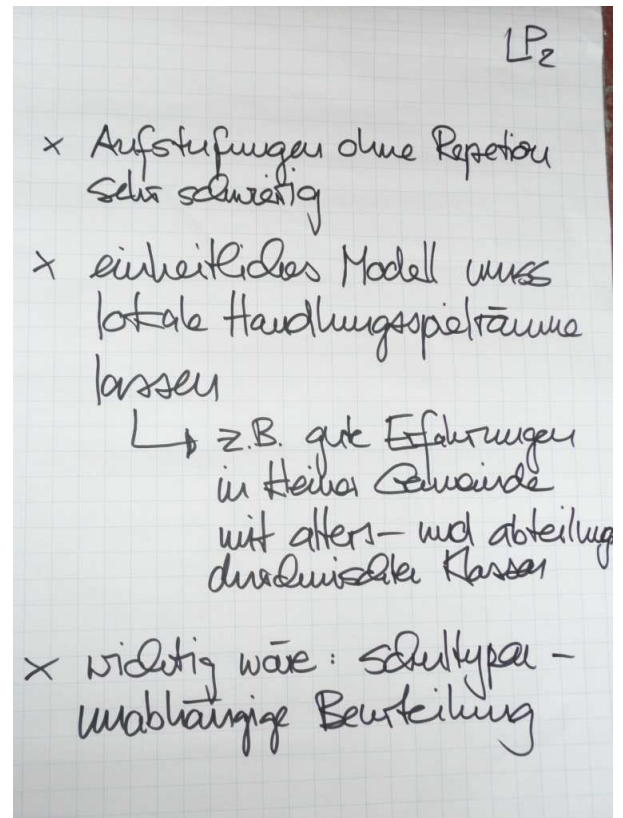 LP2
× Aufstufungen ohne Repetion
sehr schwierig
× einheitliches Modell muss
lokale Handlungsspielräume
lassen
↳ z.B. gute Erfahrungen
in kleiner Gemeinde
mit alters- und abteilung
durchmischte Klassen
× wichtig wäre: schultypen-
unabhängige Beurteilung